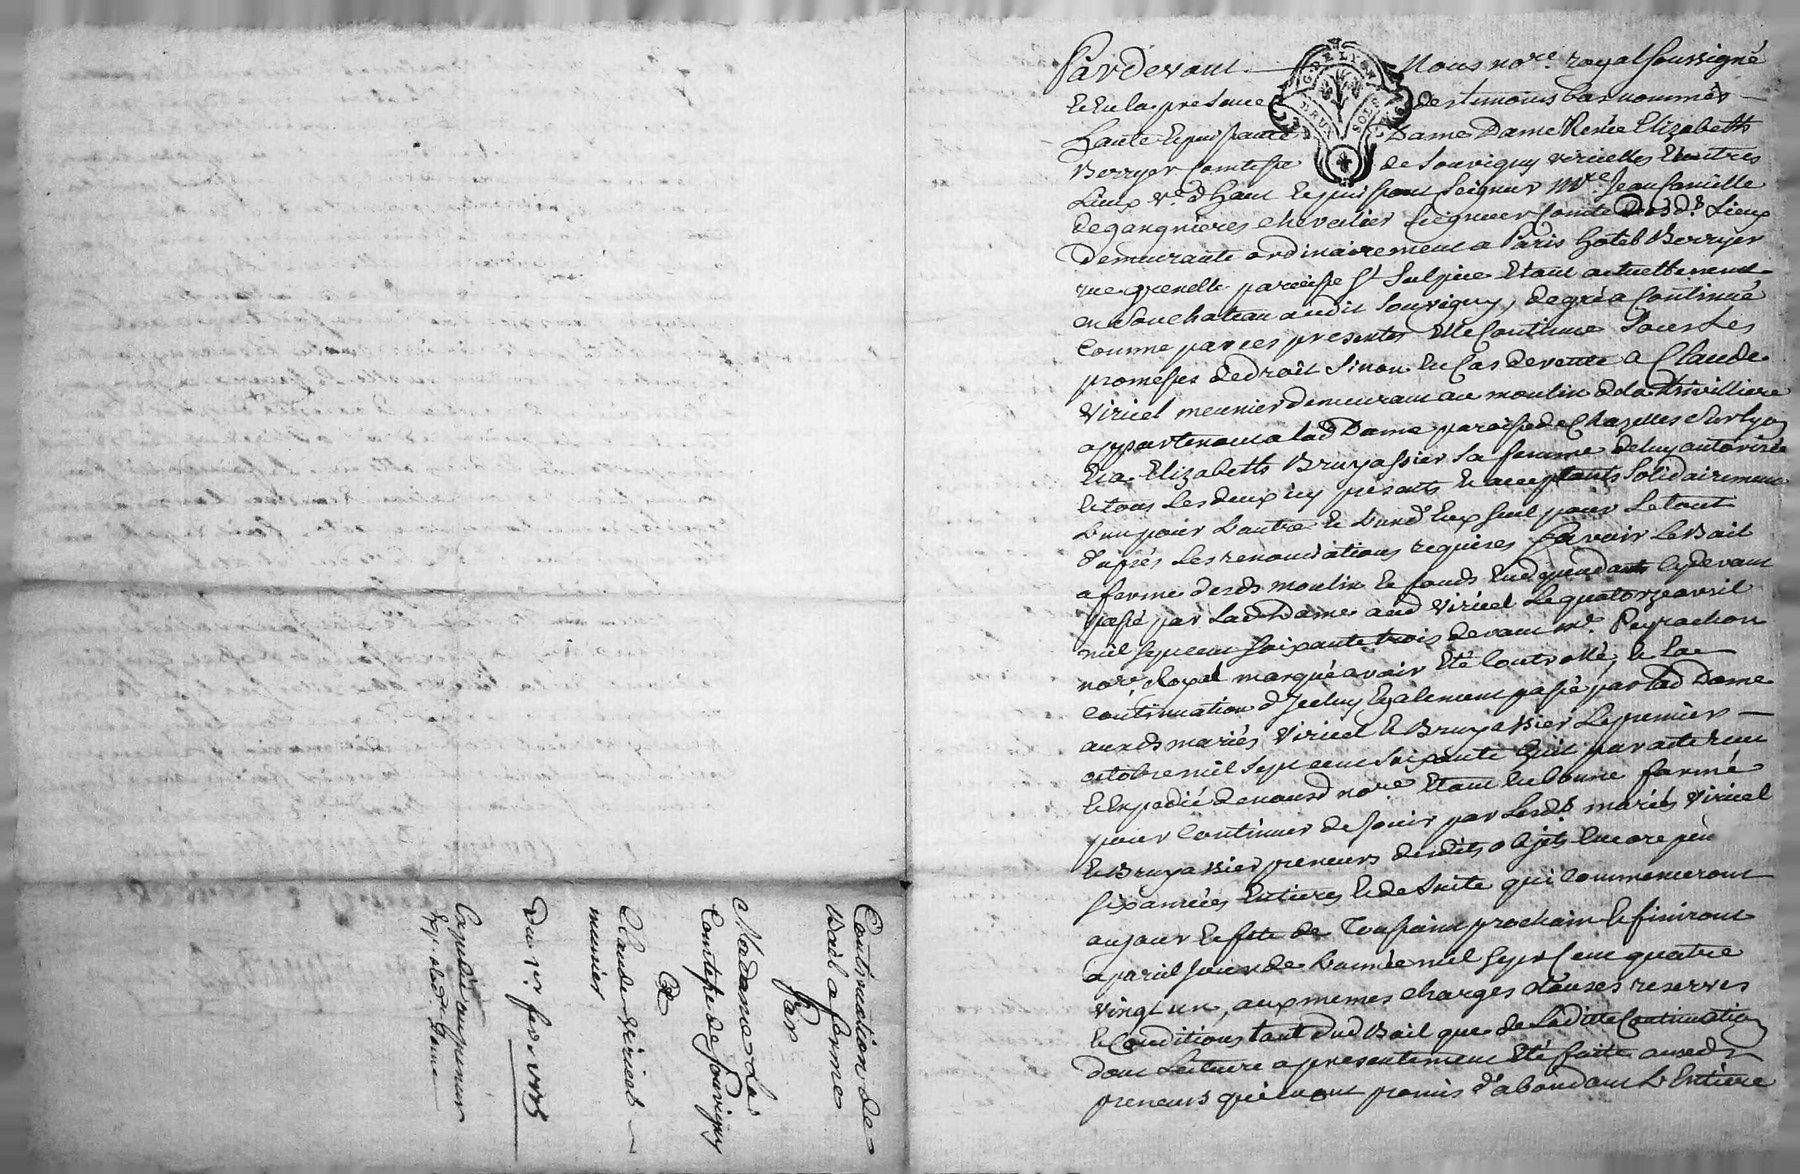 Pardevant Nous no.re royal soussigné
et en la presence des temoins bas nommés
Haute et puissante Dame Dame Renée Elizabeth
Berryer Comtesse de Souvigny viricelles et autres
Lieux v.e d'haut et puissant Seigneur M.re Jean Camille
de gangnieres chevailier Seigneur Comte desd.s Lieux
demeurante ordinairement a Paris hotel Berryer
rue grenelle paroisse S.t Sulpice Etant actuellement
en Son chateau audit Souvigny, de gré a Continué
Comme par ces presentes Elle Continue Sous Les
promesses de droit Sinon En Cas de vente a Claude
Viricel meunier demeurant au moulin de la thivilliere
appartenant a lad Dame paroisse de Chazelles Sur lyon
Et a Elizabeth Bruyassier Sa femme de luy autorisée
Et tous Les deux icy présents Et acceptants Solidairement
L'un pour L'autre Et L'un d'Eux Seul pour Le tout
d'après Les renonciations requises Savoir Le Bail
a ferme desds moulin Et fonds En dependants Cy devant
passé par Lad Dame aud Viricel Le quatorze avril
mil Sept cent Soixante trois devant M.e Peyrachon
no.re Royal marqué avoir Eté Controllé, Et La
Continuation d'Iceluy Egalement passé par Lad Dame
auxds mariés Viricel Et Bruyassier Le premier
octobre mil Sept cent Soixante huit par acte reçu
Et Expedié de nousd no.re Etant En bonne forme
pour Continuer de Jouir par Lesd.s mariés Viricel
Et Bruyassier preneurs desdits objets Encore peu
Six années Entieres Et de Suite qui Commenceront
au jour Et fete de Toussaint prochain Et finiront
a pareil jour de L'année mil Sept Cent quatre
vingt un, aux memes charges clauses reserves
Et Conditions tant dud Bail que de Laditte Continuation
dont Lecture a presentement Eté faite auxds
preneurs qui en ont promis d'abondant L'Entiere
Continuation de
Bail a ferme
Par
Madame La
Comtesse de Souvigny
A
Claude Viricel
meunier
Du 1.er